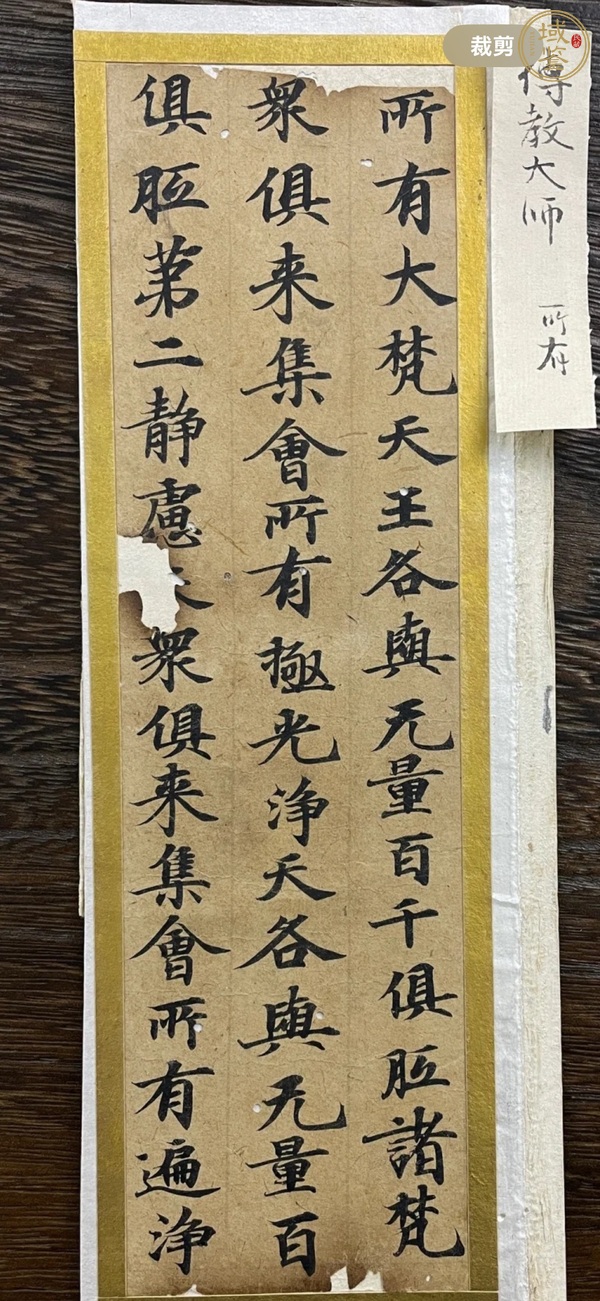 裁剪
教大师
所有
所有大梵天王各與无量百千俱胝諸梵
衆俱来集會所有極光浄天各與无量百
俱胝第二静慮衆俱来集會所有遍浄